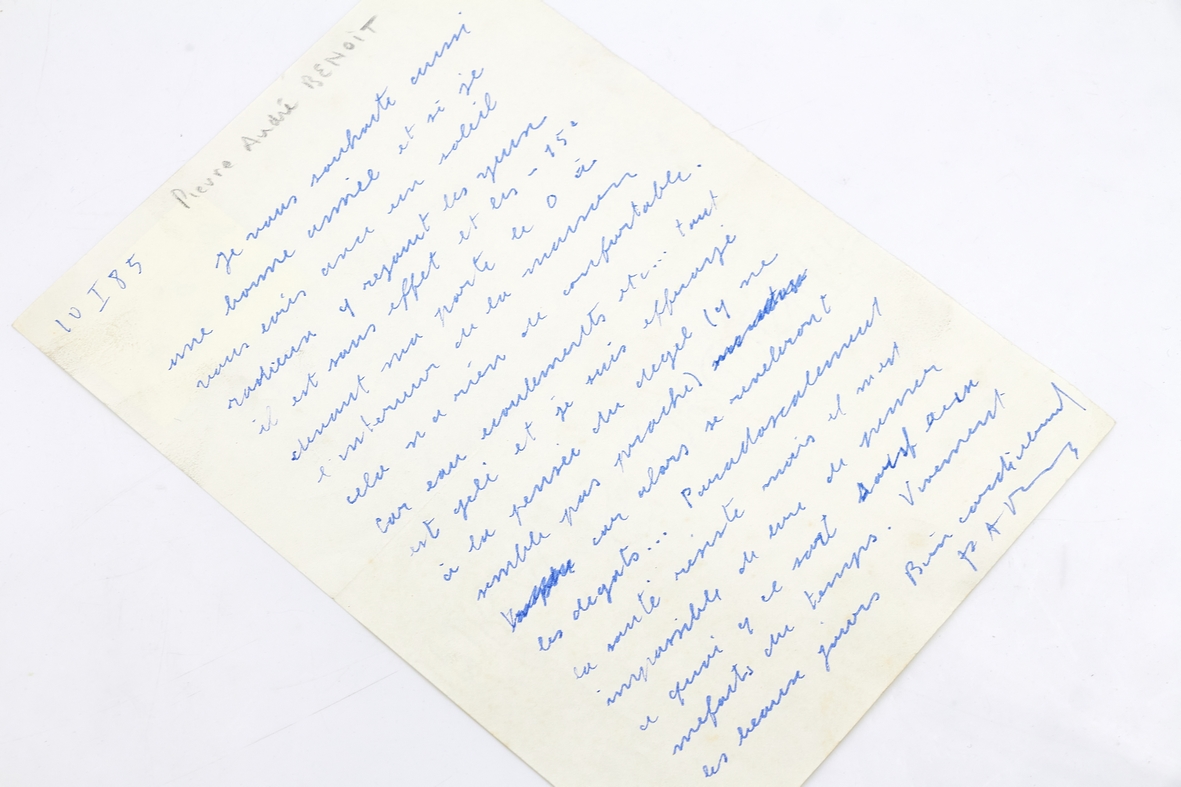 Pierre André BENOIT
10 I 85
Je vous souhaite aussi
une bonne année et si je
vous écris avec un soleil
radieux y regant les yeux
il est sans effet et les - 15°
devant ma porte le 0 à
l'interieur de la maison
cela n a rien de confortable.
Car eau ecoulements etc... tout
est gelé et je suis effrayé
à la pensée du degel (y ne
semble pas proche)
car alors se reveleront
les degats... Paradoxalement
la santé resiste mais il m'est
impossible de lire de penser
a quoi q ce soit sauf aux
mefaits du temps. Vivement
les beaux jours Bien cordialement
P A B